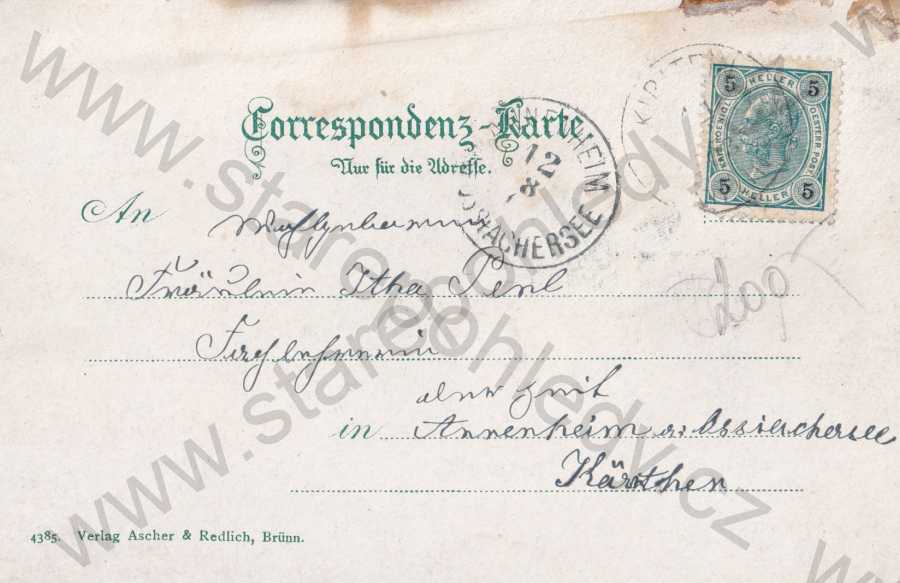 Correspondenz-Karte
Nur für die Adresse.
5 HELLER 5
KAIS. KOENIGL. OESTERR. POST
5 HELLER 5
ANNENHEIM
12
8
OSSIACHERSEE
An Wohlgeboren
Fräulein Itha Perl
Fachlehrerin
in Annenheim a. Ossiachersee
Kärnthen
4385. Verlag Ascher & Redlich, Brünn.
www.stareohledy.cz